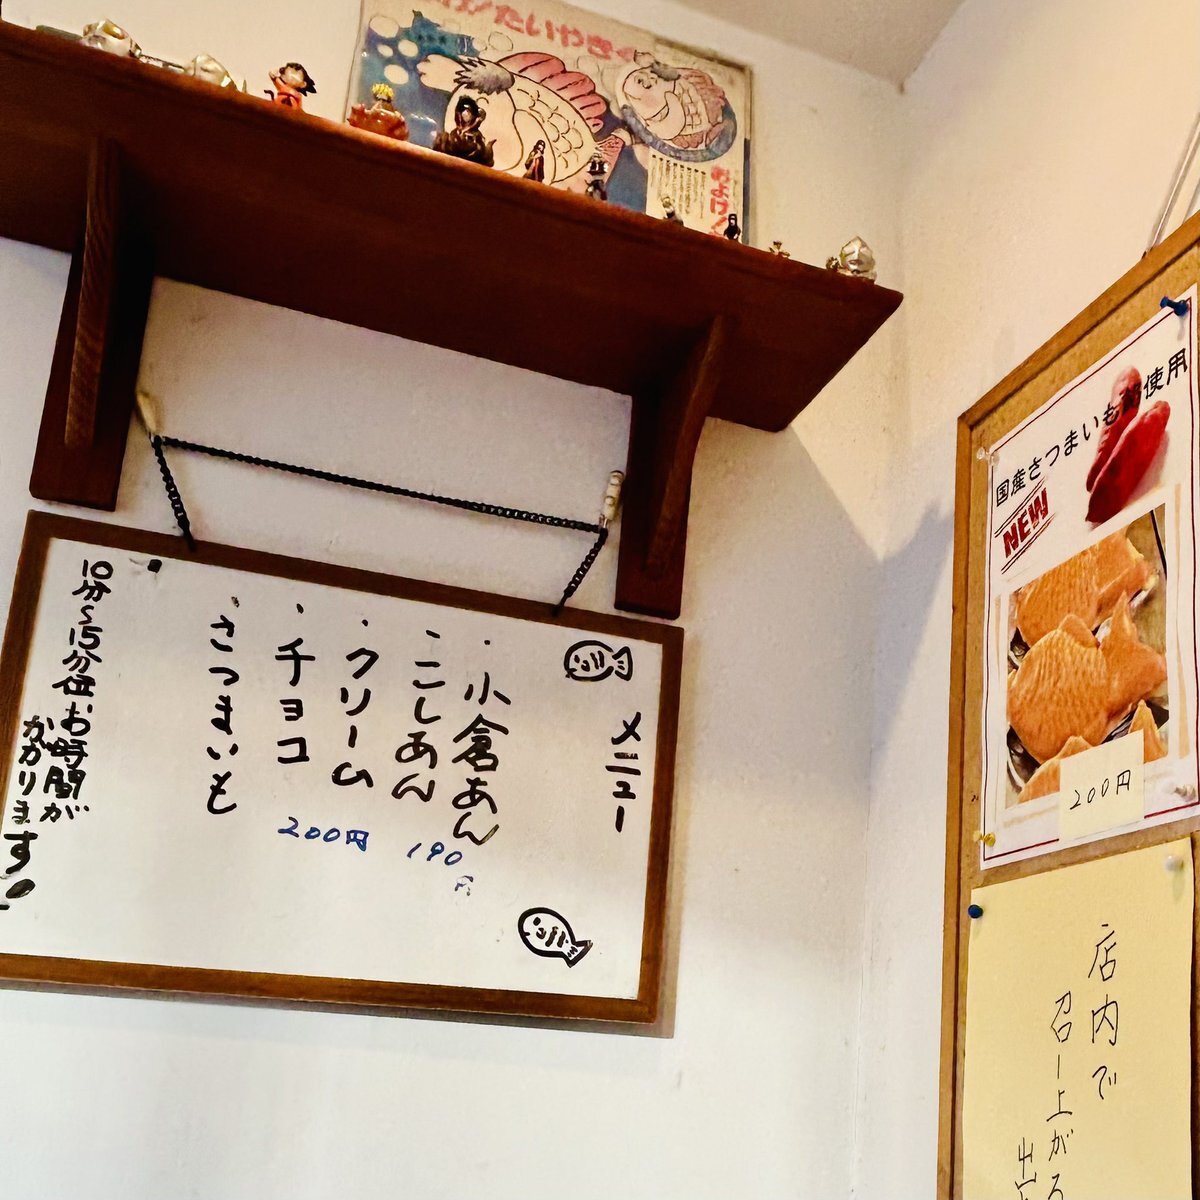 たいやき
およげ!
メニュー
・小倉あん
・こしあん
190円
・クリーム
・チョコ
200円
・さつまいも
10分~15分位お時間が
かかります!
国産さつまいも餡使用
NEW
200円
店内で
召し上がる